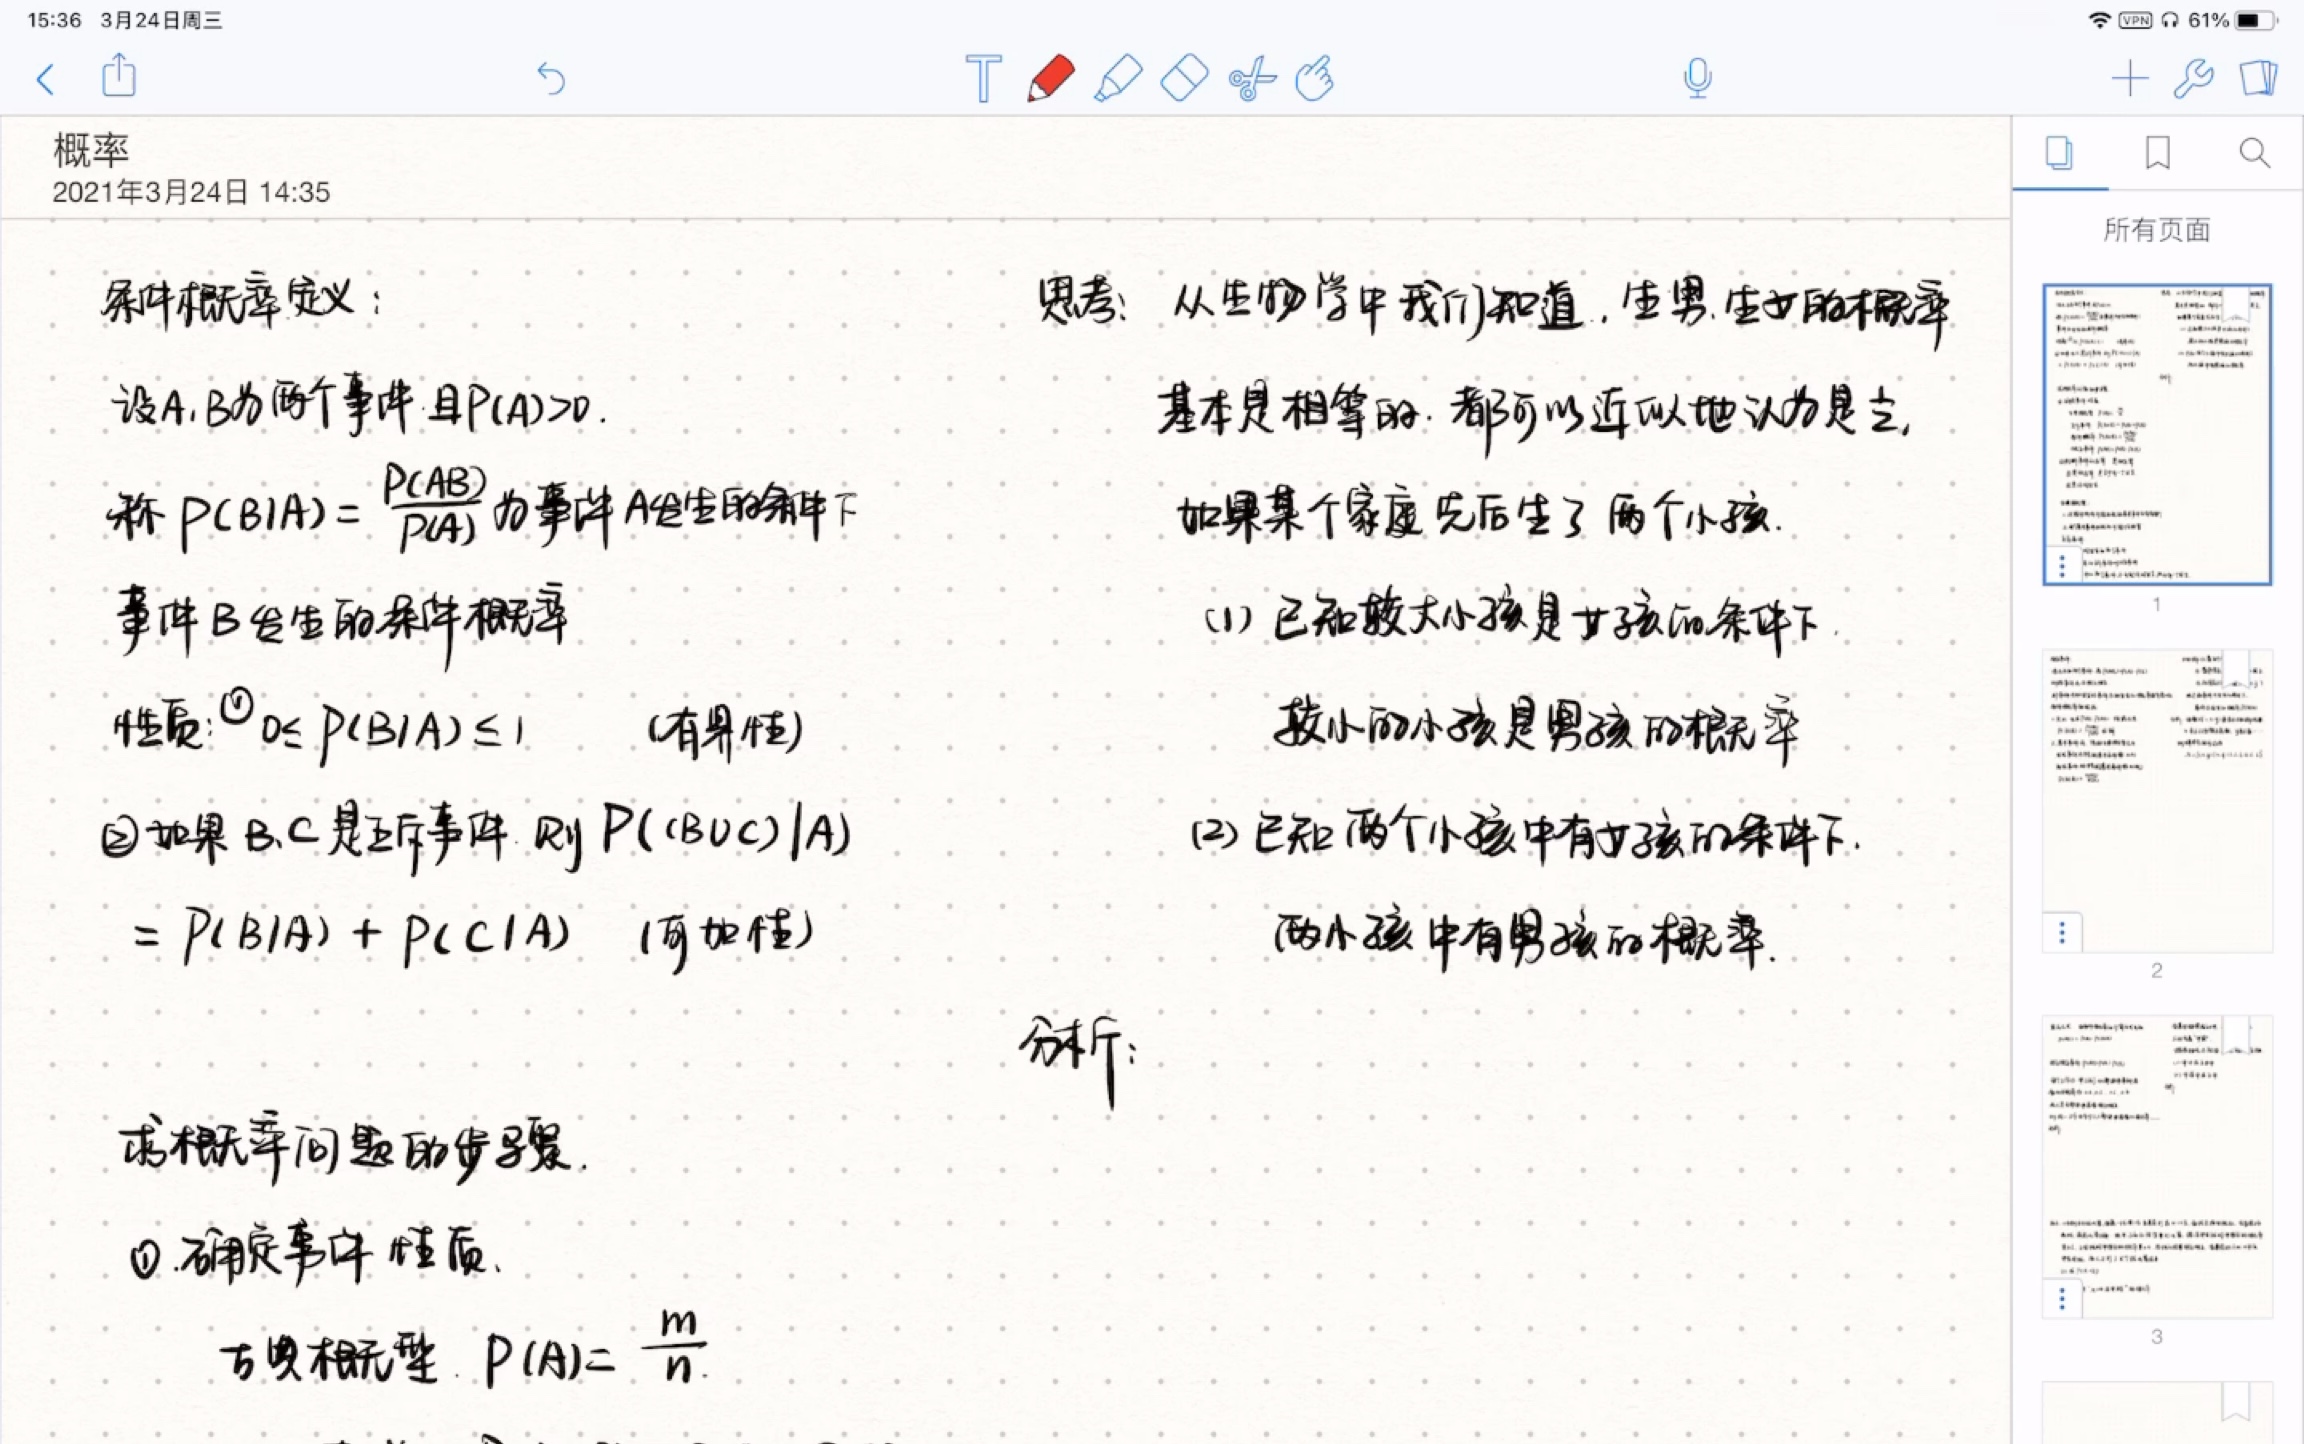 15:36 3月24日周三
VPN 61%
概率
2021年3月24日 14:35
条件概率定义:
设A,B为两个事件.且P(A)>0.
称 P(B|A) = P(AB)/P(A) 为事件A发生的条件下
事件B发生的条件概率
性质: ① 0≤ P(B|A) ≤ 1 (有界性)
② 如果 B,C 是互斥事件. 则 P((B∪C)|A)
= P(B|A) + P(C|A) (可加性)
求概率问题的步骤.
①.确定事件性质.
古典概型. P(A)= m/n.
思考: 从生物学中我们知道,生男.生女的概率
基本是相等的.都可以近似地认为是½,
如果某个家庭先后生了两个小孩.
(1) 已知较大小孩是女孩的条件下.
较小的小孩是男孩的概率
(2) 已知两个小孩中有女孩的条件下.
两小孩中有男孩的概率.
分析:
所有页面
1
2
3